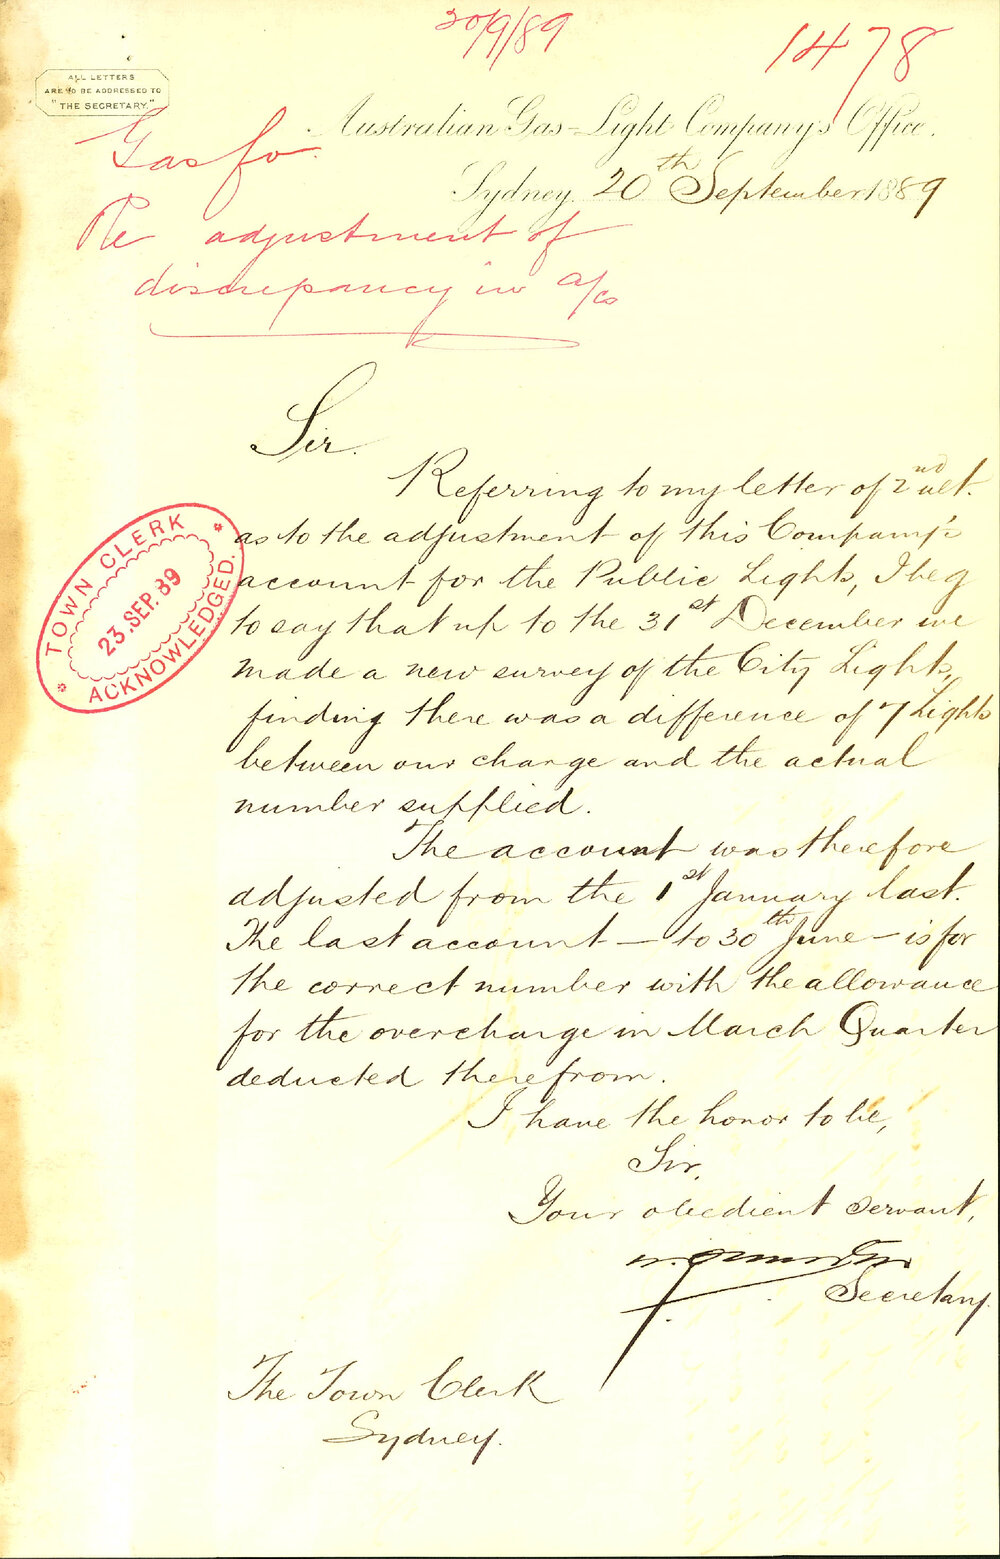 20/9/89
1478
ALL LETTERS
ARE TO BE ADDRESSED TO
"THE SECRETARY."
Australian Gas-Light Company's Office.
Sydney 20th September 1889
Gas Co.
Re adjustment of
discrepancy in a/cs
Sir.
Referring to my letter of 2nd ult.
as to the adjustment of this Company's
account for the Public Lights, I beg
to say that up to the 31st December we
made a new survey of the City Lights,
finding there was a difference of 7 Lights
between our charge and the actual
number supplied.
The account was therefore
adjusted from the 1st January last.
The last account — to 30th June — is for
the correct number with the allowance
for the overcharge in March Quarter
deducted therefrom.
I have the honor to be,
Sir,
Your obedient servant,
Secretary.
The Town Clerk
Sydney.
TOWN CLERK
23.SEP.89
ACKNOWLEDGED.